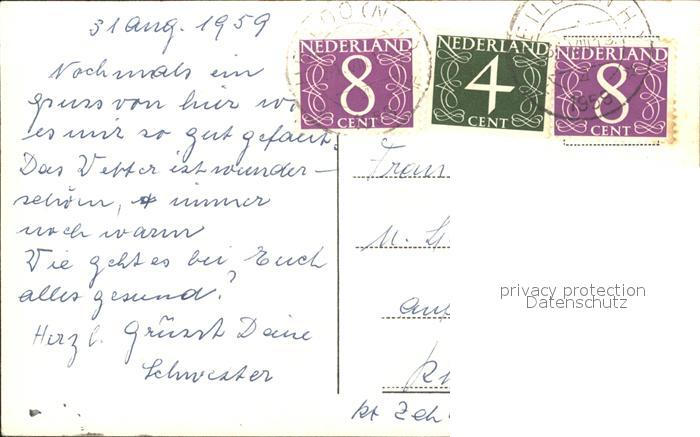 31 aug. 1959
Nochmals ein
gruss von hier wo
es mir so gut gefällt.
Das Wetter ist wunder-
schön, immer
noch warm
Wie geht es bei Euch
alles gesund?
Herzl. Grüsst Deine
Schwester
NEDERLAND
8
CENT
NEDERLAND
4
CENT
NEDERLAND
8
CENT
Frau
privacy protection
Datenschutz